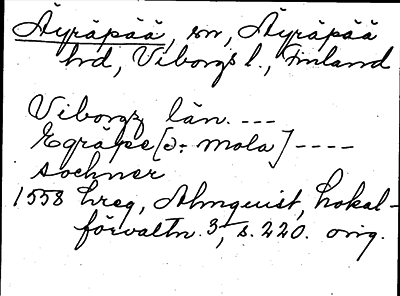 Äyräpää, sn, Äyräpää
hd, Viborgs l., Finland
Viborgs län. ---
Egräpe [ɔ: mola] ----
sochner
1558 Lreg, Almquist, Lokal-
förvaltn. 3, s. 220. orig.